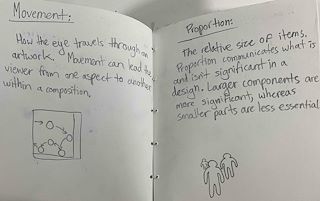 Movement:
How the eye travels through an
artwork. Movement can lead the
viewer from one aspect to another
within a composition.
Proportion:
The relative size of items.
Proportion communicates what is
and isn't significant in a
design. Larger components are
more significant, whereas
smaller parts are less essential